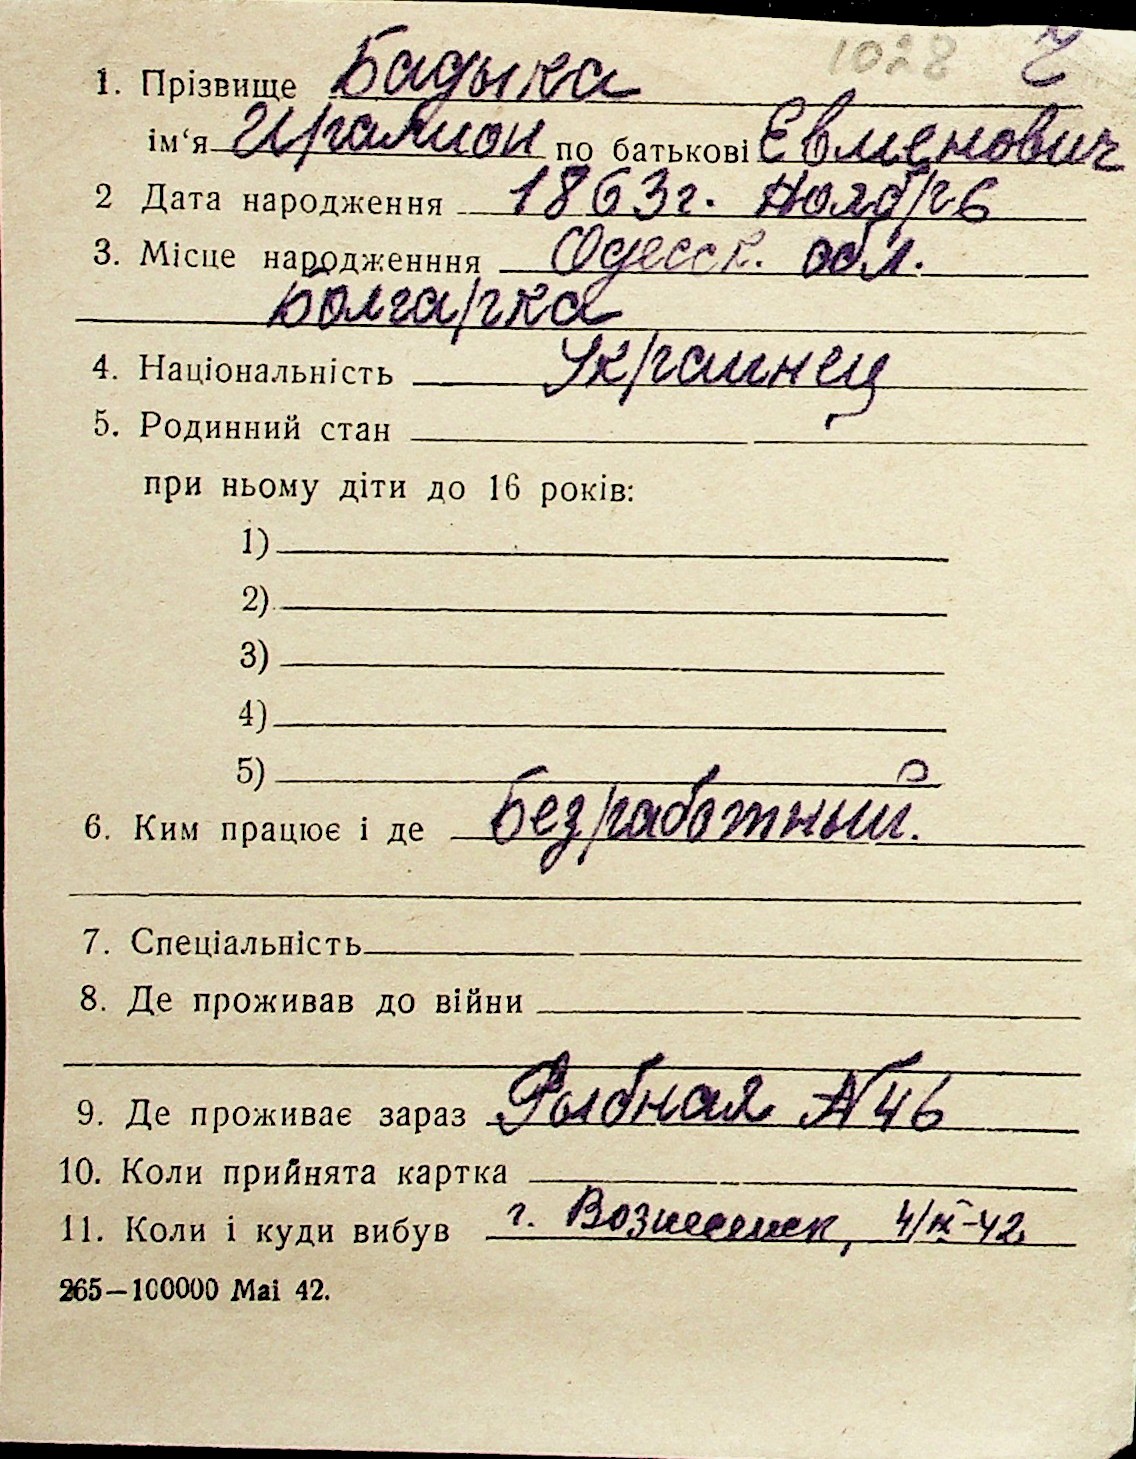 1028
1. Прізвище Бадыка
ім‘я Иралион по батькові Евменович
2 Дата народження 1863г. Ноябрь
3. Місце народженння Одесск. обл.
Болгарка
4. Національність Украинец
5. Родинний стан
при ньому діти до 16 років:
1)
2)
3)
4)
5)
6. Ким працює і де Безработный.
7. Спеціальність
8. Де проживав до війни
9. Де проживає зараз Рыбная №46
10. Коли прийнята картка
11. Коли і куди вибув г. Вознесенск, 4/IX-42
265—100000 Mai 42.